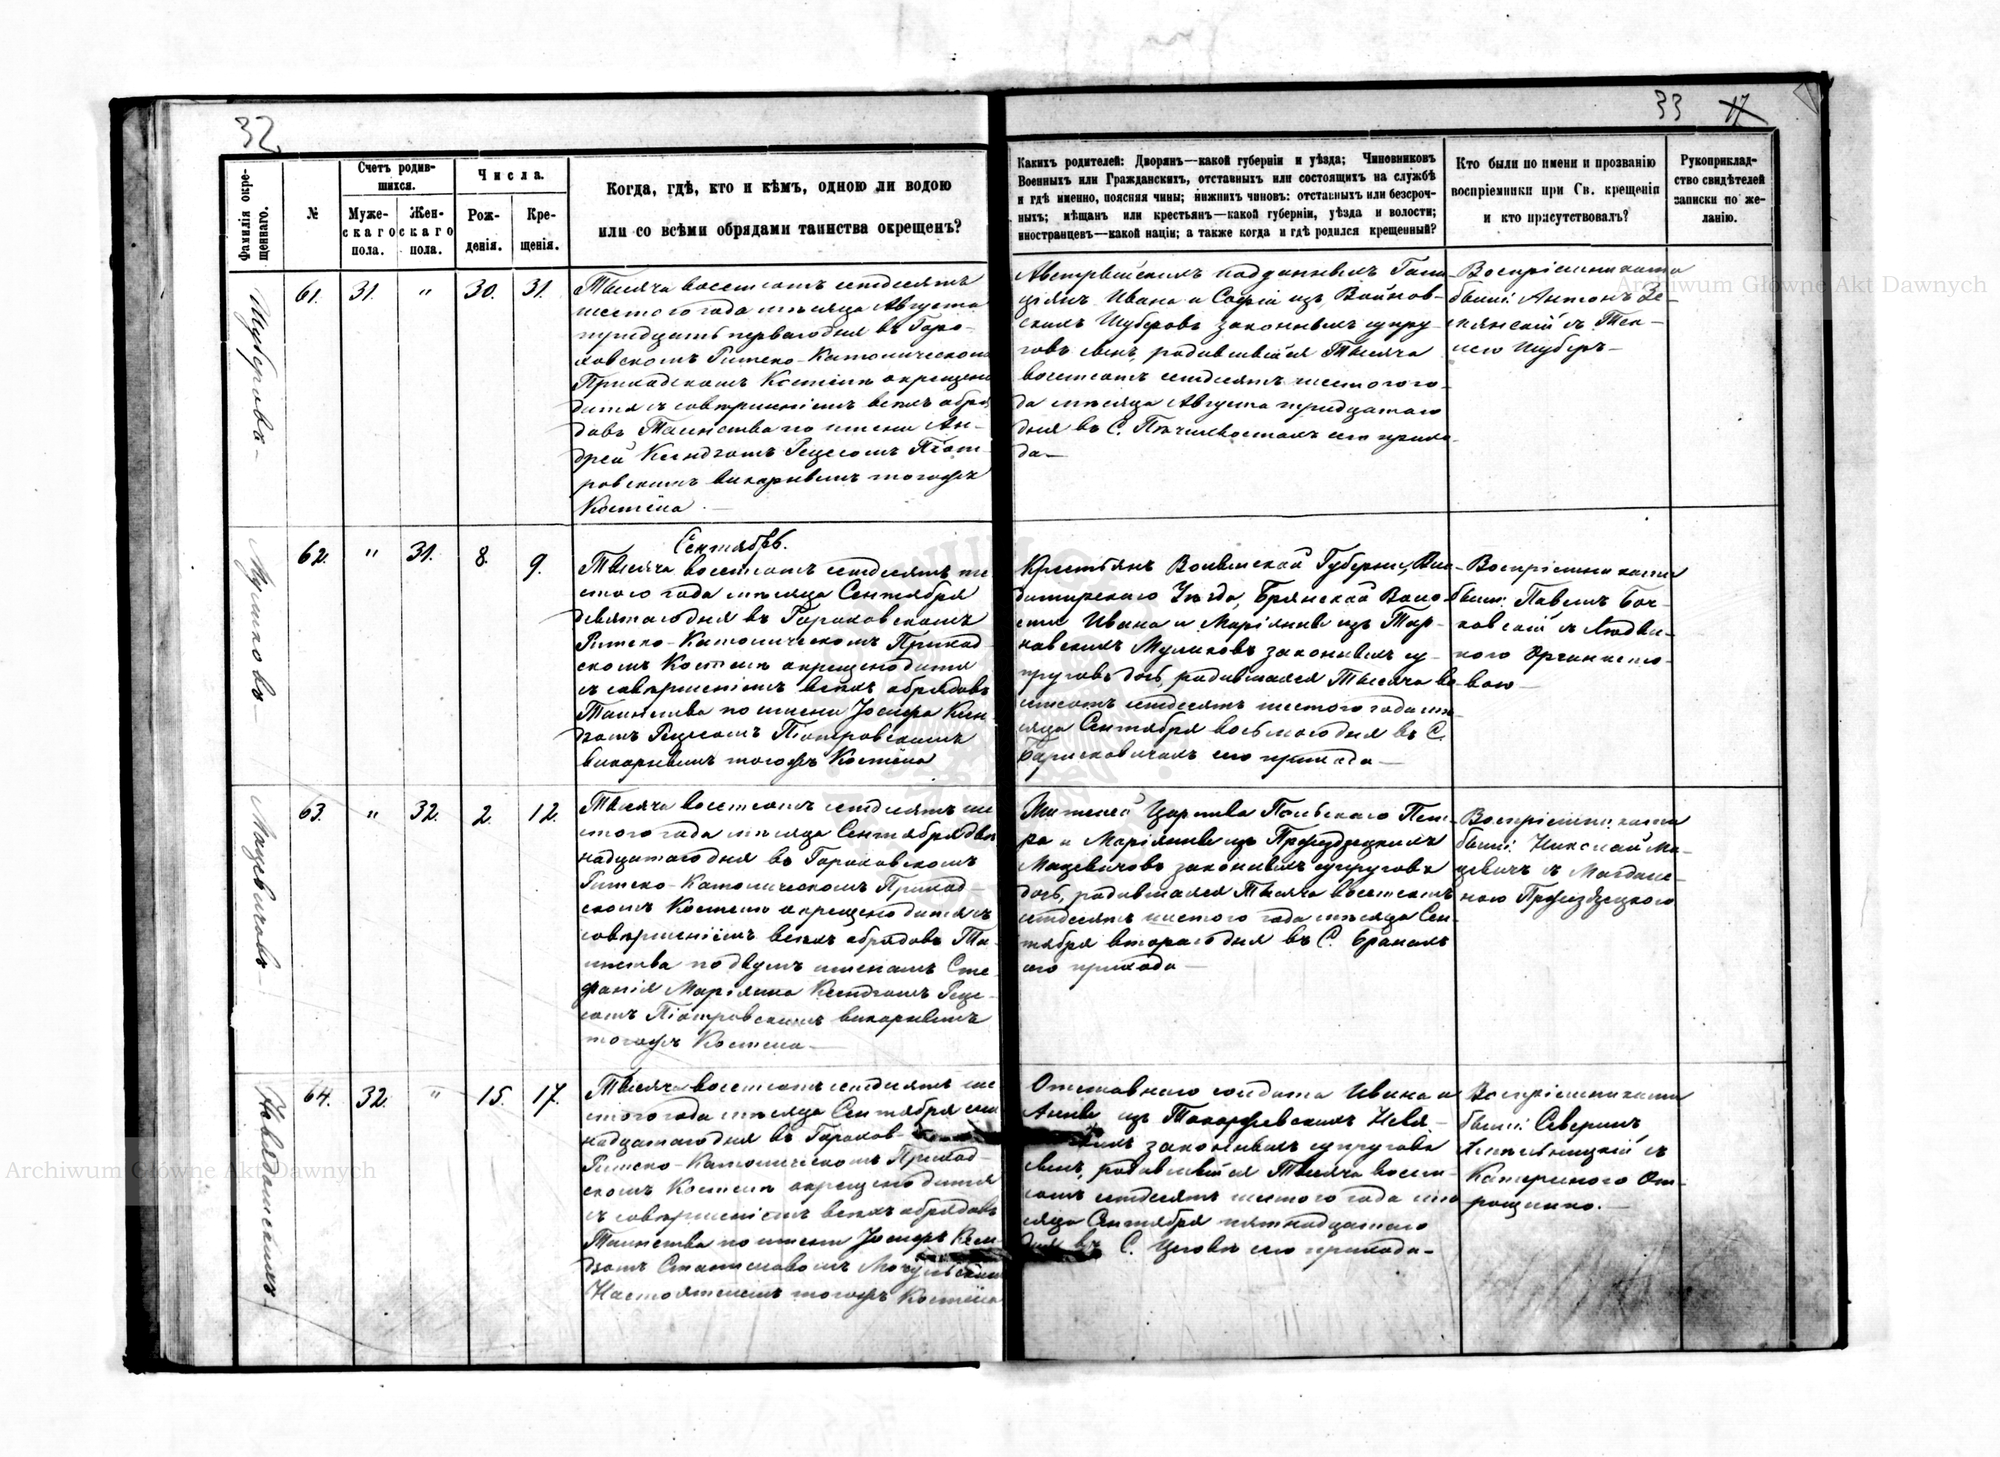 32
33 17
Фамилія окре-
щеннаго.
№
Счетъ родив-
шихся.
Муже-
скаго
пола.
Жен-
скаго
пола.
Числа.
Рож-
денія.
Кре-
щенія.
Когда, гдѣ, кто и кѣмъ, одною ли водою
или со всѣми обрядами таинства окрещенъ?
Какихъ родителей: Дворянъ—какой губерніи и уѣзда; Чиновниковъ
Военныхъ или Гражданскихъ, отставныхъ или состоящихъ на службѣ
и гдѣ именно, поясняя чины; нижнихъ чиновъ: отставныхъ или безсроч-
ныхъ; мѣщанъ или крестьянъ—какой губерніи, уѣзда и волости;
иностранцевъ—какой націи; а также когда и гдѣ родился крещенный?
Кто были по имени и прозванію
воспріемники при Св. крещеніи
и кто присутствовалъ?
Рукоприклад-
ство свидѣтелей
записки по же-
ланію.
Шуберовъ
61. 31. " 30. 31.
Тысяча восемсотъ семдесятъ
шестого года мѣсяца Августа
тридцать перваго дня въ Горо-
ховскомъ Римско-Католическомъ
Приходскомъ Костелѣ окрещено
дитя съ совершеніемъ всѣхъ обря
довъ Таинства по имени Ан-
дрей Ксендзомъ Піот-
ровскимъ викарнымъ тогожъ
Костела.
Австрійскихъ подданныхъ Гали
ціянъ Ивана и Софіи изъ Войнов-
скихъ Шуберовъ законныхъ супру-
говъ сынъ, родившійся Тысяча
восемсотъ семдесятъ шестого го-
да мѣсяца Августа тридцатаго
дня въ С. его прихо-
да—
Воспріемниками
были: Антонъ Зе-
съ Тек-
лею Шуберъ—
Муликовъ
62. " 31. 8. 9.
Сентябрь.
Тысяча восемсотъ семдесятъ ше
стого года мѣсяца Сентября
девятого дня въ Гороховскомъ
Римско-Католическомъ Приход-
скомъ Костелѣ окрещено дитя
съ совершеніемъ всѣхъ обрядовъ
Таинства по имени Іосифа Ксен-
дзомъ Піотровскимъ
викарнымъ тогожъ Костела
Крестьянъ Волынской Губерніи, Вла-
димирскаго Уѣзда, Брянской Воло-
сти Ивана и Маріянны изъ Тар-
новскихъ Муликовъ законныхъ су-
пруговъ дочь, родившаяся Тысяча во-
семсотъ семдесятъ шестого года мѣ-
сяца Сентября восьмого дня въ С.
Борисковичахъ его прихода—
Воспріемниками
были: Павелъ Боч-
ковскій съ Людви-
кою Органисто-
вою—
Мацевичовъ
63. " 32. 2. 12.
Тысяча восемсотъ семдесятъ ше
стого года мѣсяца Сентября двѣ
надцатаго дня въ Гороховскомъ
Римско-Католическомъ Приход-
скомъ Костелѣ окрещено дитя съ
совершеніемъ всѣхъ обрядовъ Та-
инства по двумъ именамъ Сте-
фанія Маріянна Ксендзомъ
Піотровскимъ викарнымъ
тогожъ Костела—
Жителей Царства Польскаго Пет-
ра и Маріянны изъ
Мацевичовъ законныхъ супруговъ
дочь, родившаяся Тысяча восемсотъ
семдесятъ шестого года мѣсяца Сен-
тября второго дня въ С. Бранахъ
его прихода—
Воспріемниками
были: Николай Ма-
цевичъ съ Магдале-
ною
64. 32. " 15. 17.
Тысяча восемсотъ семдесятъ ше
стого года мѣсяца Сентября сем
надцатаго дня въ Горохов-
Римско-Католическомъ Приход-
скомъ Костелѣ окрещено дитя
съ совершеніемъ всѣхъ обрядовъ
Таинства по имени Іосифъ Ксен-
дзомъ Станиславомъ
Настоятелемъ тогожъ Костела
Отставного солдата Ивана и
Анны изъ
законныхъ супруговъ
сынъ, родившійся Тысяча восем-
сотъ семдесятъ шестого года мѣ
сяца Сентября пятнадцатаго
дня въ С. Цеговѣ его прихода—
Воспріемниками
были: Северинъ
съ
Катериною От-
рощенко.—
Archiwum Główne Akt Dawnych
Archiwum Główne Akt Dawnych